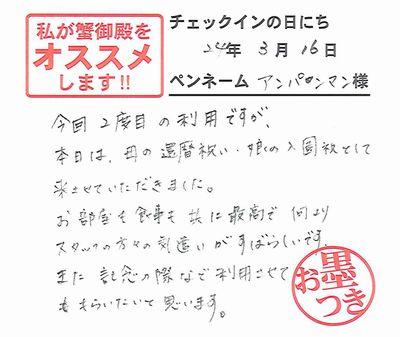 私が蟹御殿を
オススメ
します!!
チェックインの日にち
24年 3月 16日
ペンネーム アンパンマン様
今回 2度目の利用ですが、
本日は、母の還暦祝い・娘の入園祝として
来させていただきました。
お部屋も食事も 共に最高で 何より
スタッフの方々の気遣いがすばらしいです。
また 記念の際など利用させて
もらいたいと思います。
お墨つき